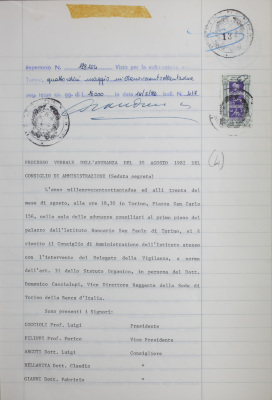 Repertorio N.
Visto per la
quattordici maggio
PROCESSO VERBALE DELL'ADUNANZA DEL 30 AGOSTO 1982 DEL
CONSIGLIO DI AMMINISTRAZIONE (Seduta segreta)
L'anno millenovecentottantadue ed alli trenta del
mese di agosto, alle ore 18,30 in Torino, Piazza San Carlo
156, nella sala delle adunanze consiliari al primo piano del
palazzo dell'Istituto Bancario San Paolo di Torino, si è
riunito il Consiglio di Amministrazione dell'Istituto stesso
con l'intervento del Delegato della Vigilanza, a norma
dell'art. 35 dello Statuto Organico, in persona del Dott.
Domenico Casciuigi, Vice Direttore Reggente della Sede di
Torino della Banca d'Italia.
Sono presenti i Signori:
Prof. Luigi Presidente
FILIPPI Prof. Enrico Vice Presidente
ARCUTI Dott. Luigi Consigliere
BELLAVITA Dott. Claudio "
GIANNI Dott. Fabrizio "